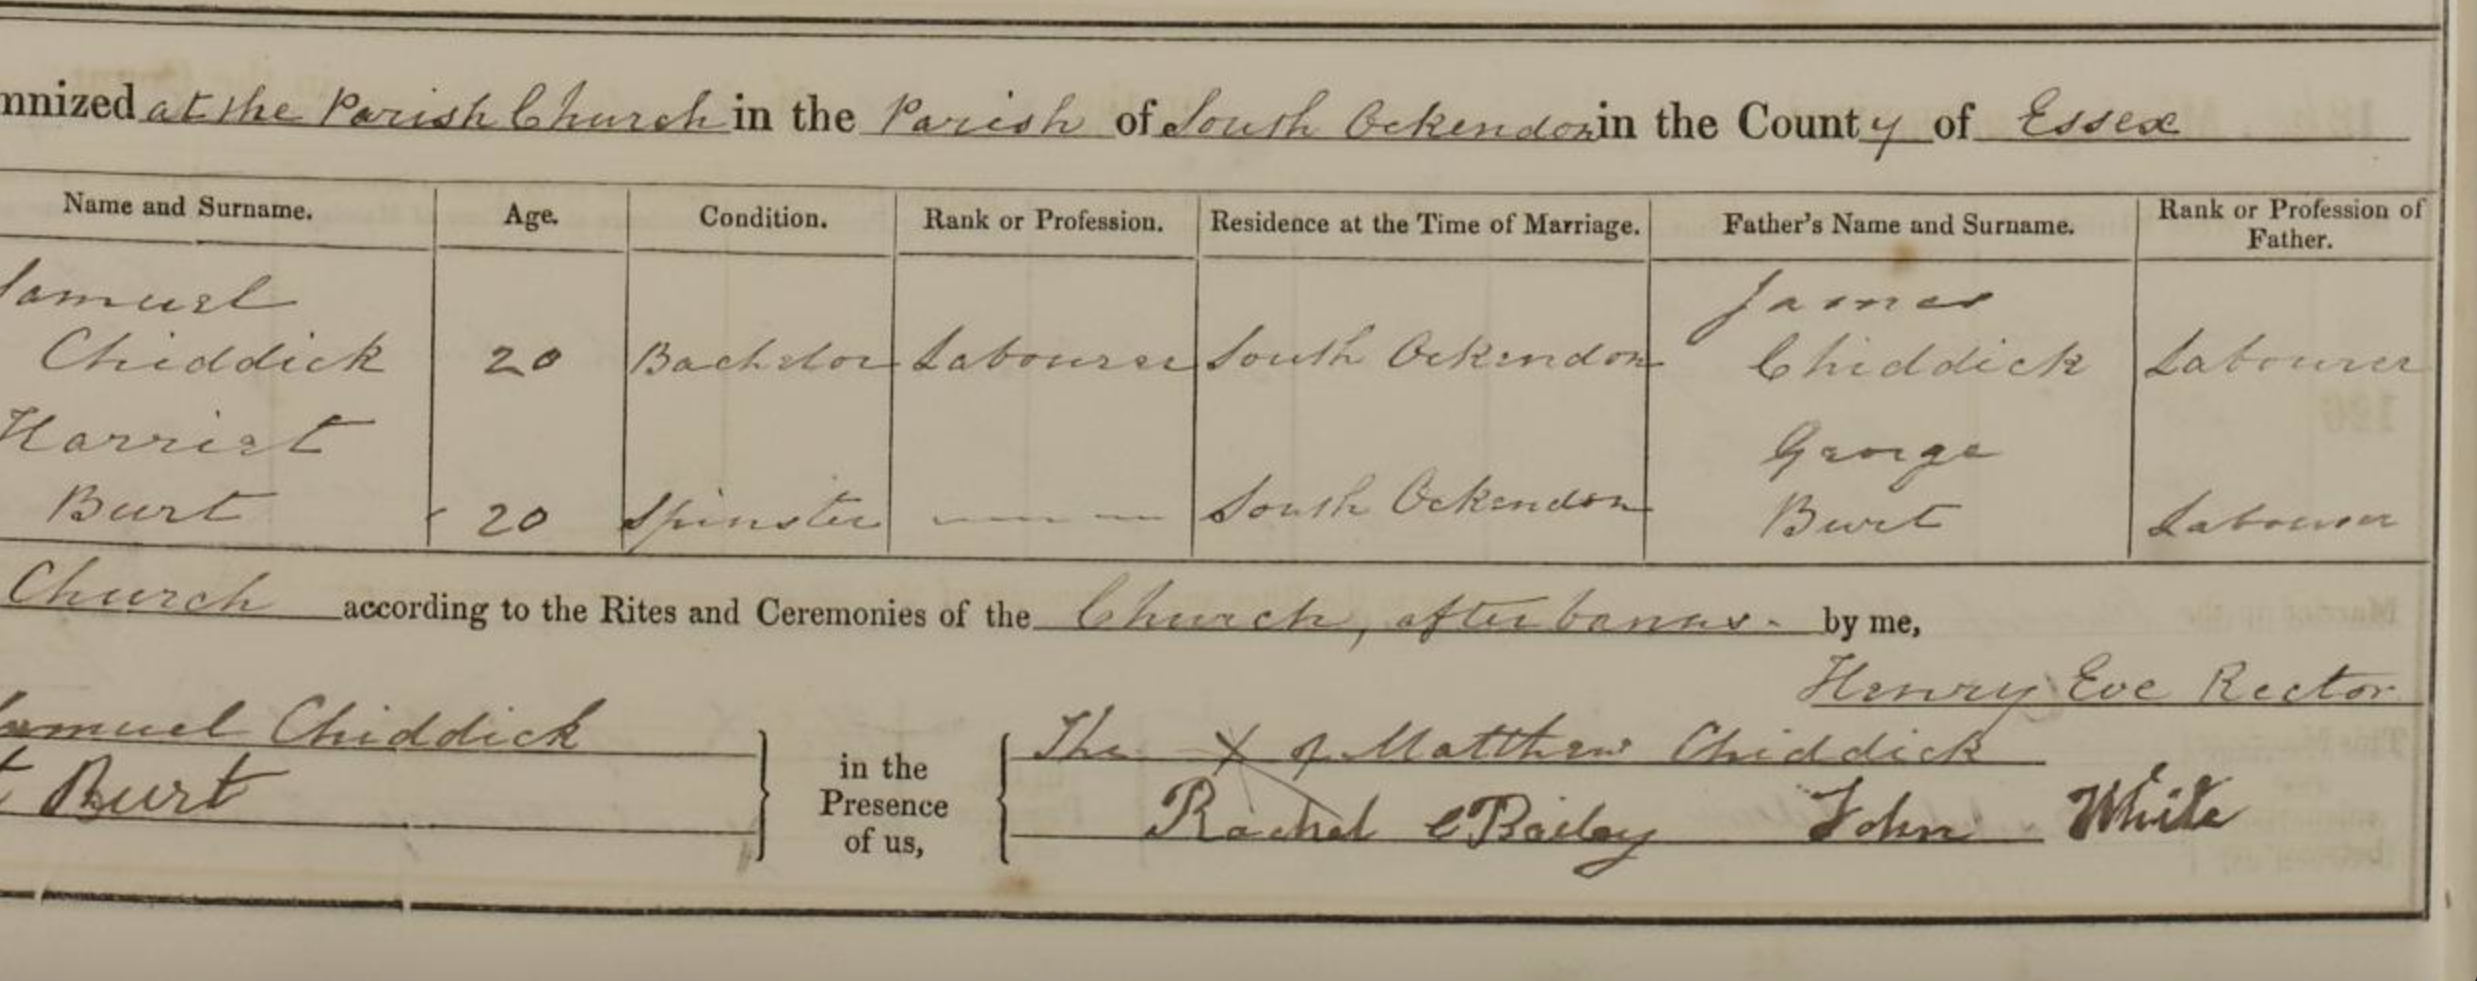 mnized at the Parish Church in the Parish of South Ockendon in the County of Essex
Name and Surname. Age. Condition. Rank or Profession. Residence at the Time of Marriage. Father's Name and Surname. Rank or Profession of Father.
Samuel James
Chiddick 20 Bachelor Labourer South Ockendon Chiddick Labourer
Harriet George
Burt 20 Spinster South Ockendon Burt Labourer
Church according to the Rites and Ceremonies of the Church, after banns. by me,
Henry Eve Rector
Samuel Chiddick The X of Matthew Chiddick
t Burt in the Presence of us, Rachel Bailey John White